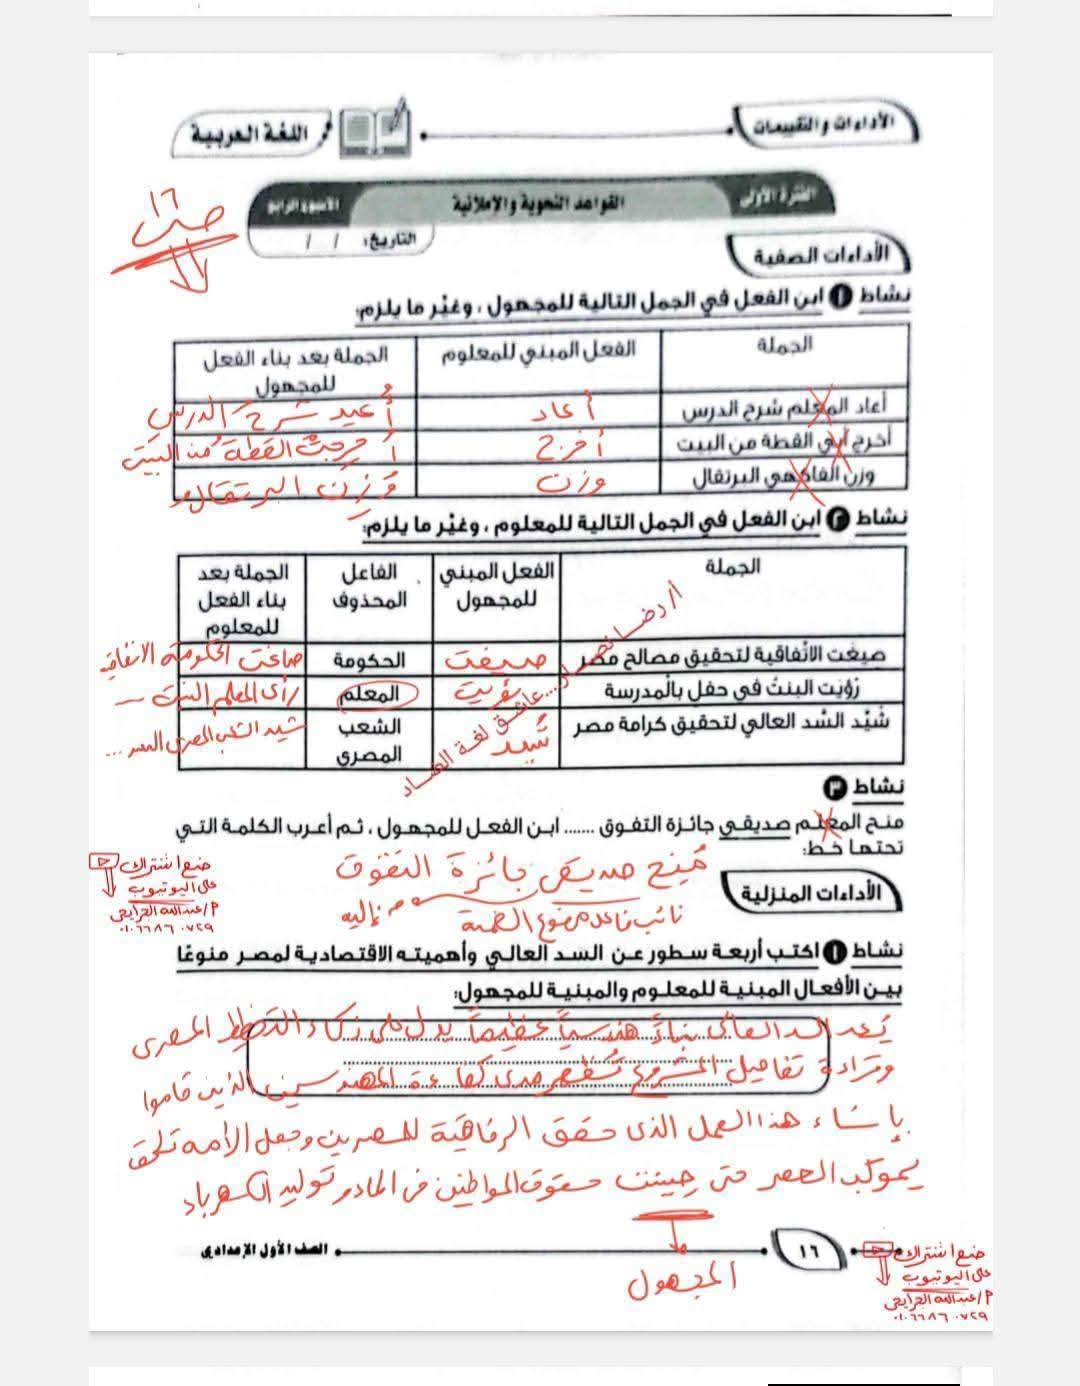 الأداءات والتقييمات
اللغة العربية
الفترة الأولى
القواعد النحوية والإملائية
الأسبوع الرابع
صـ ١٦
التاريخ: / /
الأداءات الصفية
نشاط ١ ابن الفعل في الجمل التالية للمجهول، وغيّر ما يلزم:
الجملة
الفعل المبني للمعلوم
الجملة بعد بناء الفعل للمجهول
أعاد المعلم شرح الدرس
أعاد
أُعيد شرحُ الدرس
أخرج أبي القطة من البيت
أخرج
أُخرجت القطةُ من البيت
وزن الفاكهي البرتقال
وزن
وُزِن البرتقالُ
نشاط ٢ ابن الفعل في الجمل التالية للمعلوم، وغيّر ما يلزم:
الجملة
الفعل المبني للمجهول
الفاعل المحذوف
الجملة بعد بناء الفعل للمعلوم
صيغت الاتفاقية لتحقيق مصالح مصر
صيغت
الحكومة
صاغت الحكومة الاتفاقية
رُؤيَت البنتُ في حفل بالمدرسة
المعلم
رأى المعلم البنت
شُيِّد السّد العالي لتحقيق كرامة مصر
شُيد
الشعب المصري
شيد الشعب المصرى السد ...
أ/ رضا نصار... عاشق لغة الضاد
نشاط ٣
منح المعلم صديقي جائزة التفوق ....... ابن الفعل للمجهول، ثم أعرب الكلمة التي
تحتها خط:
مُنح صديقى جائزة التفوق
نائب فاعل مرفوع الضمة
م. إليه
ضع اشتراك
على اليوتيوب
م/عبدالله الجرايحى
٠١٠٦٦٨٦٠٧٢٩
الأداءات المنزلية
نشاط ١ اكتب أربعة سطور عن السد العالي وأهميته الاقتصادية لمصر منوعًا
بين الأفعال المبنية للمعلوم والمبنية للمجهول:
يُعد السد العالى بناءً هندسياً عظيماً يدل على ذكاء التخطيط المصرى
وقراءة تفاصيل المشروع تُظهر مدى كفاءة المهندسين الذين قاموا
بإنشاء هذا العمل الذى حقق الرفاهية للمصريين وجعل الأمه تلحق
بموكب العصر حتى حقوق المواطنين فى الماء و توليد الكهرباء
المجهول
١٦
الصف الأول الإعدادي
ضع اشتراك
على اليوتيوب
م/عبدالله الجرايحى
٠١٠٦٦٨٦٠٧٢٩